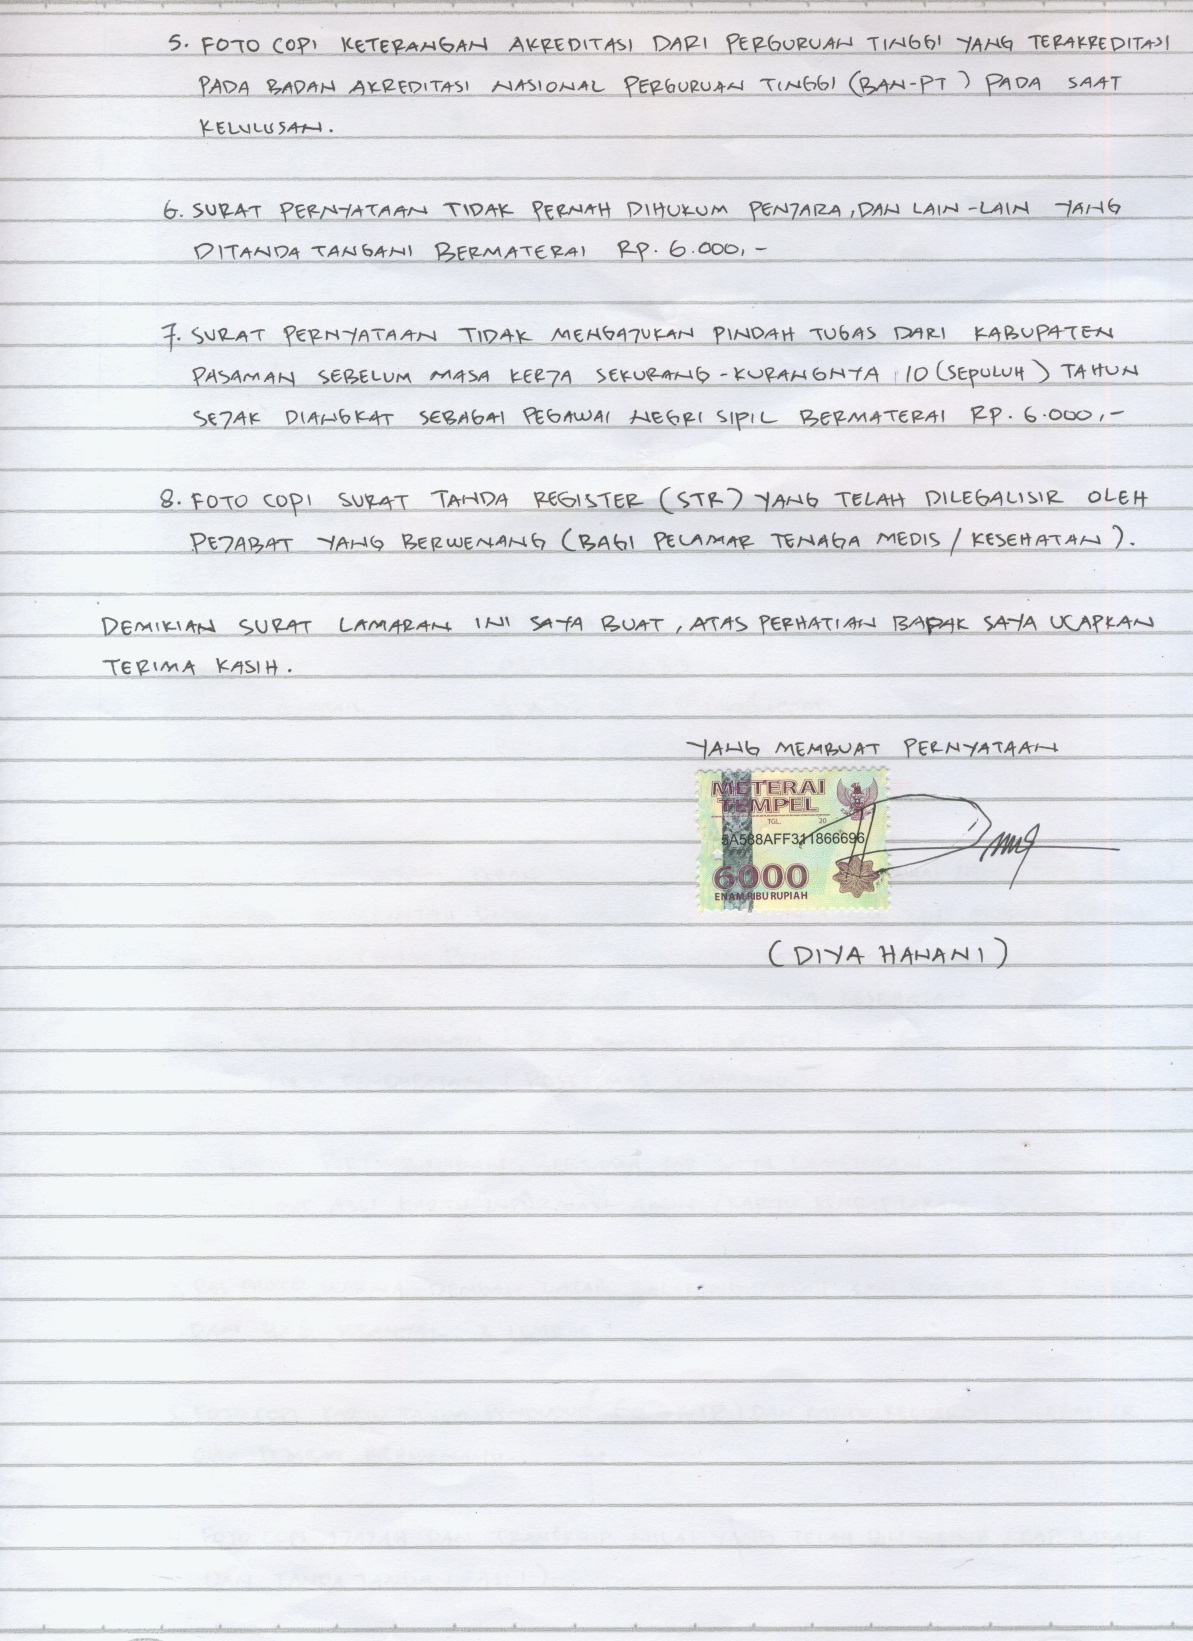 5. FOTO COPI KETERANGAN AKREDITASI DARI PERGURUAN TINGGI YANG TERAKREDITASI
PADA BADAN AKREDITASI NASIONAL PERGURUAN TINGGI (BAN-PT) PADA SAAT
KELULUSAN.
6. SURAT PERNYATAAN TIDAK PERNAH DIHUKUM PENJARA, DAN LAIN-LAIN YANG
DITANDA TANGANI BERMATERAI RP. 6.000,-
7. SURAT PERNYATAAN TIDAK MENGAJUKAN PINDAH TUGAS DARI KABUPATEN
PASAMAN SEBELUM MASA KERJA SEKURANG-KURANGNYA 10 (SEPULUH) TAHUN
SEJAK DIANGKAT SEBAGAI PEGAWAI NEGRI SIPIL BERMATERAI RP. 6.000,-
8. FOTO COPI SURAT TANDA REGISTER (STR) YANG TELAH DILEGALISIR OLEH
PEJABAT YANG BERWENANG (BAGI PELAMAR TENAGA MEDIS / KESEHATAN).
DEMIKIAN SURAT LAMARAN INI SAYA BUAT, ATAS PERHATIAN BAPAK SAYA UCAPKAN
TERIMA KASIH.
YANG MEMBUAT PERNYATAAN
METERAI
TEMPEL
TGL. 20
5A588AFF311866696
6000
ENAM RIBU RUPIAH
(DIYA HANANI)